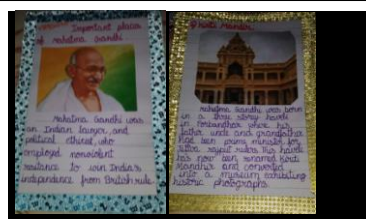 Important places
of mahatma Gandhi
Mahatma Gandhi was
an Indian lawyer, and
political ethicst, who
employed nonviolent
resitance to win India's
independence from British rule.
Kirti Mandir
Mahatma Gandhi was born
in a three storey haveli
in Porbandhar where his
father uncle and grandfather
had been prime minister for
rajput rulers. This haveli
has now been renamed Kirti
Mandhir and converted
into a museum exhibiting
historic photographs.